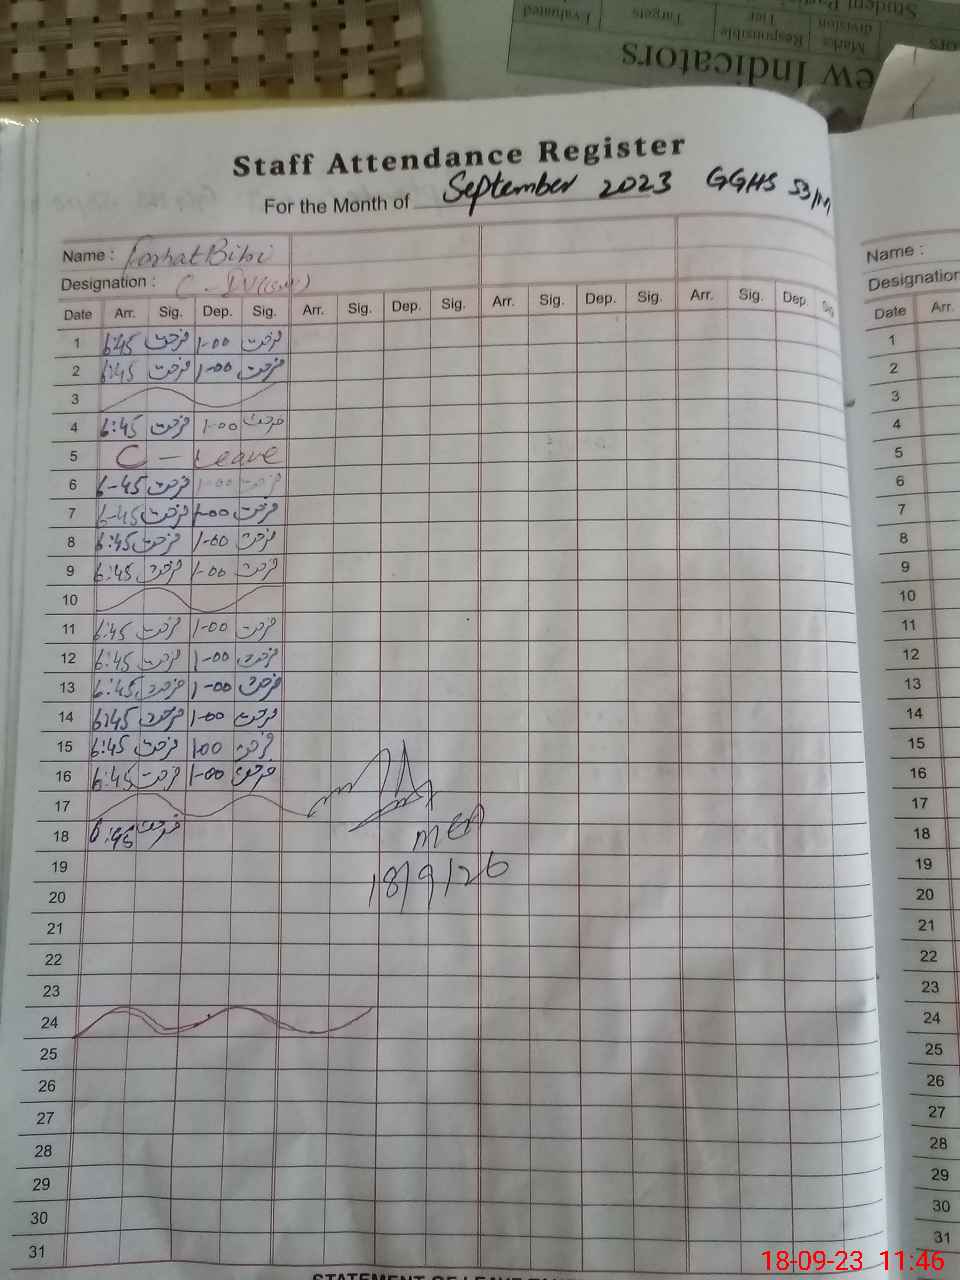 Student
Evaluated
Targets
Tier
Responsible
Marks
division
ew Indicators
Staff Attendance Register
For the Month of September 2023 GGHS 53/M
Name : Farhat Bibi
Designation : C-IV
Date Arr. Sig. Dep. Sig. Arr. Sig. Dep. Sig. Arr. Sig. Dep. Sig. Arr. Sig. Dep. Sig
1 6:45 فرحت 1-00 فرحت
2 6:45 فرحت 1-00 فرحت
3
4 6:45 فرحت 1-00 فرحت
5 C - Leave
6 6-45 فرحت 1-00 فرحت
7 6-45 فرحت 1-00 فرحت
8 6:45 فرحت 1-00 فرحت
9 6:45 فرحت 1-00 فرحت
10
11 6:45 فرحت 1-00 فرحت
12 6:45 فرحت 1-00 فرحت
13 6:45 فرحت 1-00 فرحت
14 6:45 فرحت 1-00 فرحت
15 6:45 فرحت 1-00 فرحت
16 6:45 فرحت 1-00 فرحت
17
18 6:45 فرحت
MEA
18/9/26
19
20
21
22
23
24
25
26
27
28
29
30
31
Name :
Designation
Date Arr.
1
2
3
4
5
6
7
8
9
10
11
12
13
14
15
16
17
18
19
20
21
22
23
24
25
26
27
28
29
30
31
18-09-23 11:46